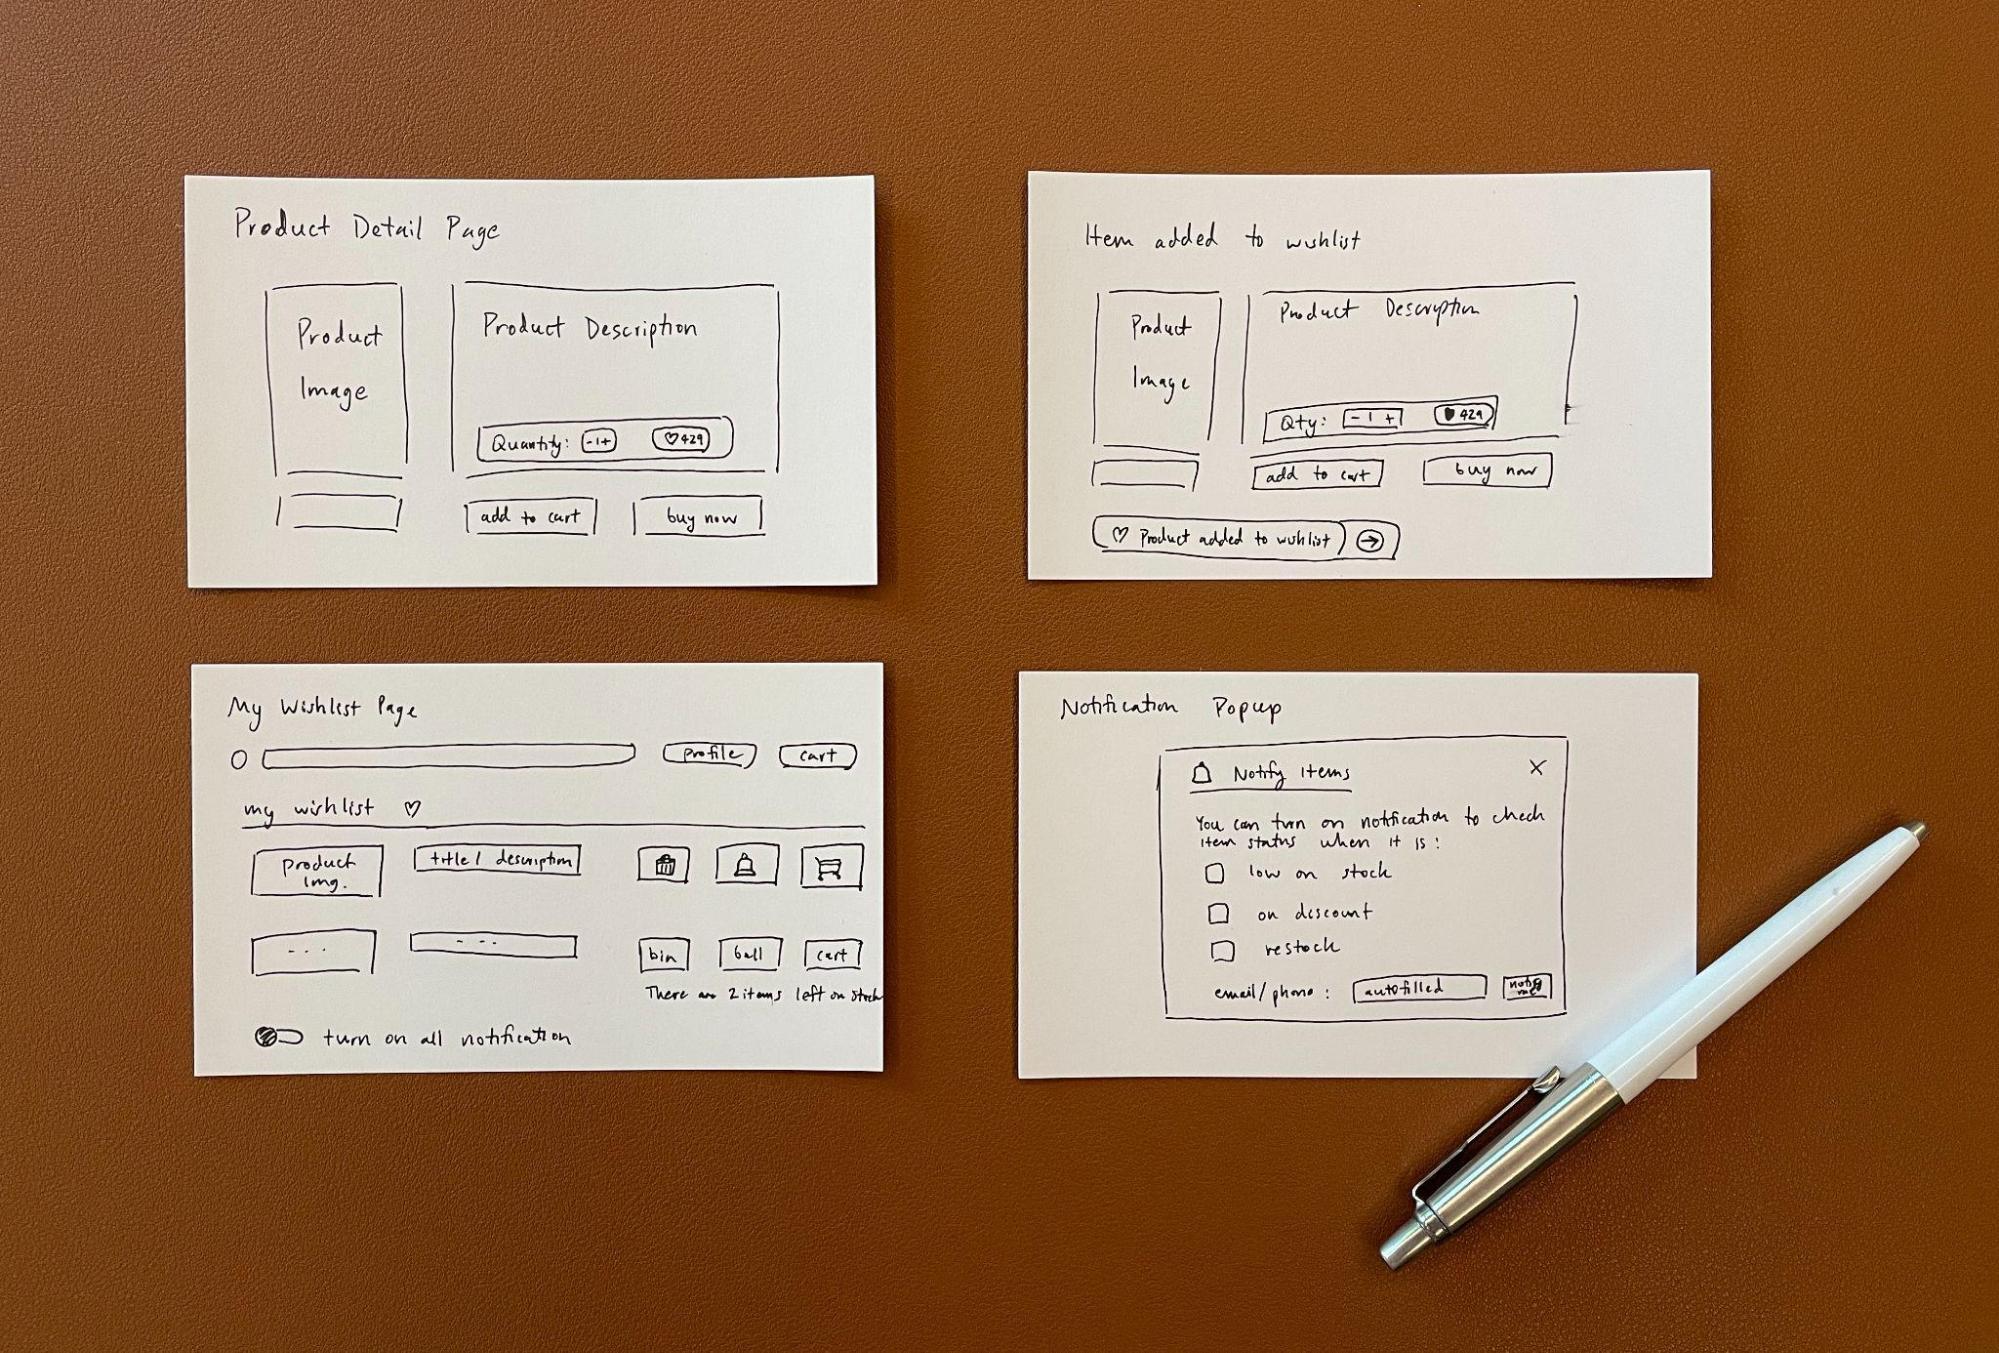 Product Detail Page
Product
Image
Product Description
Quantity: - 1 + ♡ 429
add to cart
buy now
Item added to wishlist
Product
Image
Product Description
Qty: - 1 + ♥ 429
add to cart
buy now
♡ Product added to wishlist →
My Wishlist Page
profile
cart
my wishlist ♡
product
Img.
title / description
- - -
- - -
bin
ball
cart
There are 2 items left on stock
turn on all notification
Notification Popup
Notify Items X
You can turn on notification to check
item status when it is :
low on stock
on discount
restock
email / phone : autofilled
notify
me